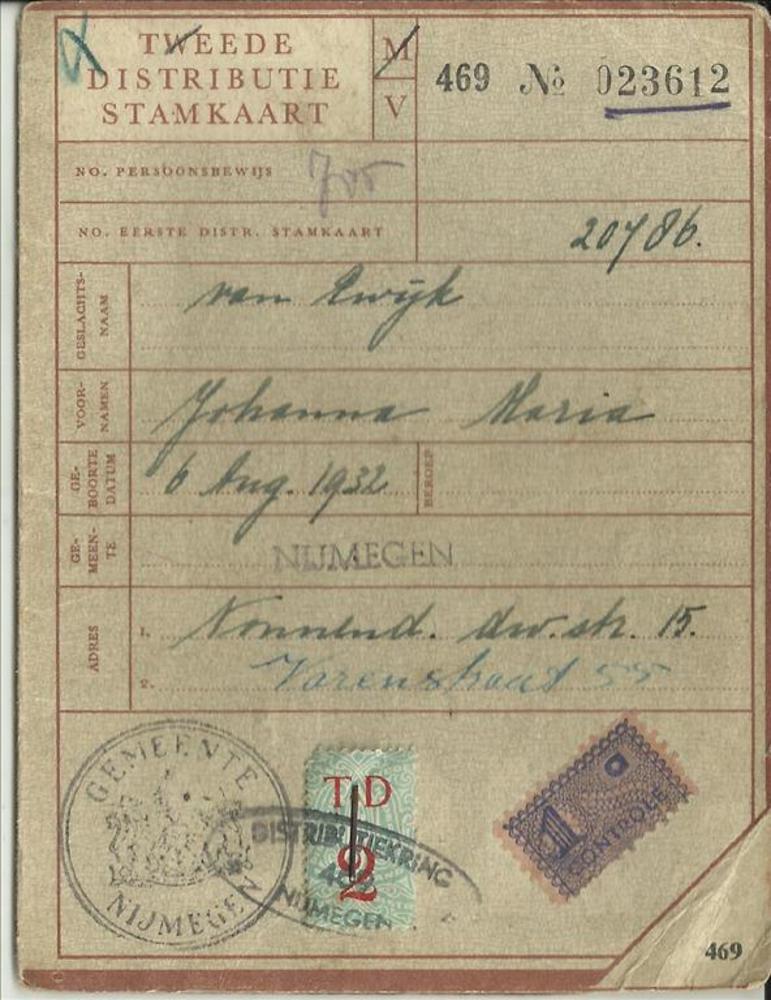 TWEEDE
DISTRIBUTIE
STAMKAART
M
V
469 № 023612
NO. PERSOONSBEWIJS
NO. EERSTE DISTR. STAMKAART 20786.
GESLACHTS-
NAAM
van Ewijk
VOOR-
NAMEN
Johanna Maria
GE-
BOORTE
DATUM
6 Aug. 1932
BEROEP
GE-
MEEN-
TE
NIJMEGEN
ADRES
1. Nonnend. dw. str. 15.
2. Varenstraat 55
GEMEENTE
NIJMEGEN
TD
2
DISTRIBUTIEKRING
NIJMEGEN
1
CONTROLE
469